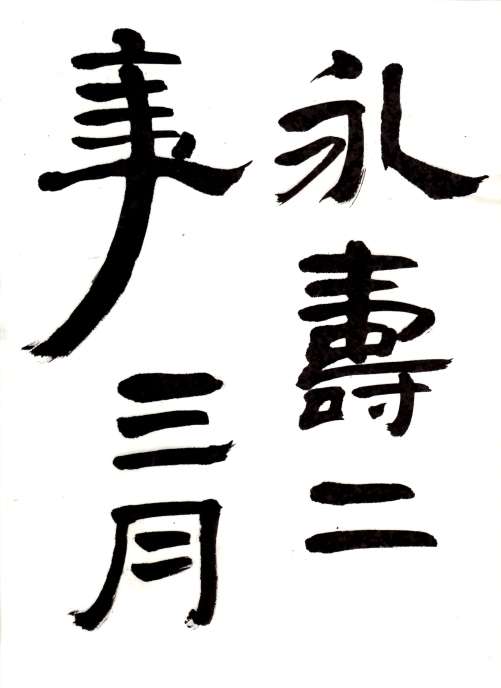 永壽二
年三月